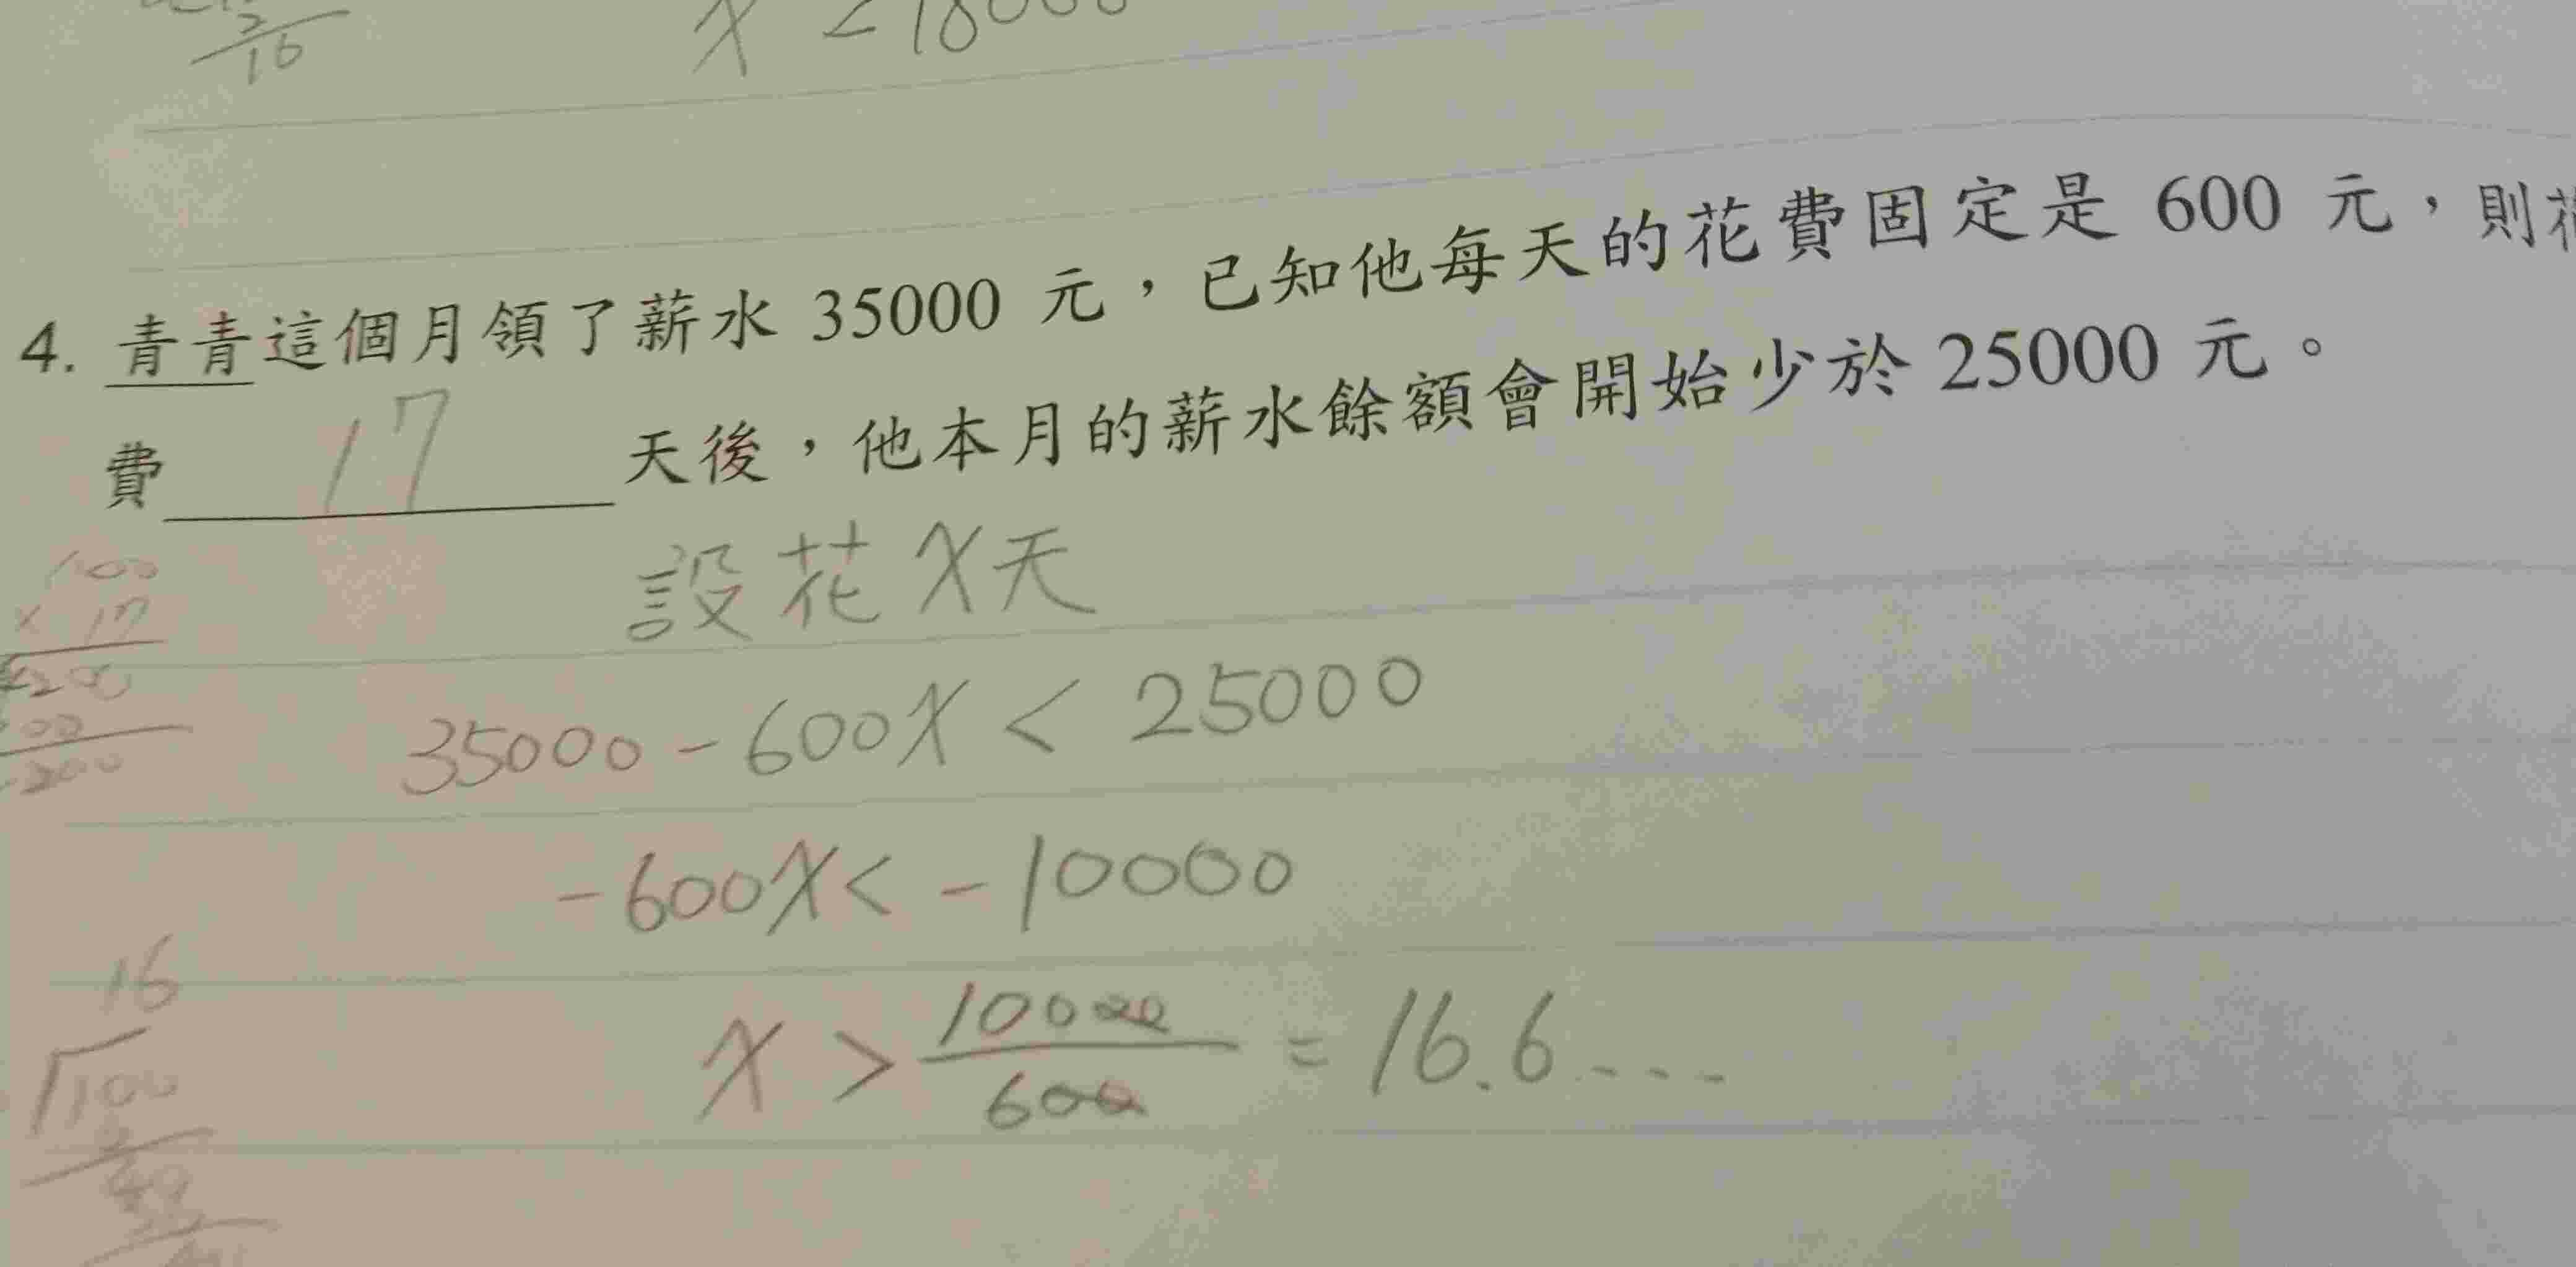 16
x < 18000
4. 青青這個月領了薪水 35000 元，已知他每天的花費固定是 600 元，則花
費 17 天後，他本月的薪水餘額會開始少於 25000 元。
設花 x 天
35000 - 600x < 25000
-600x < -10000
x > 10000/600 = 16.6...
× 17
16
100